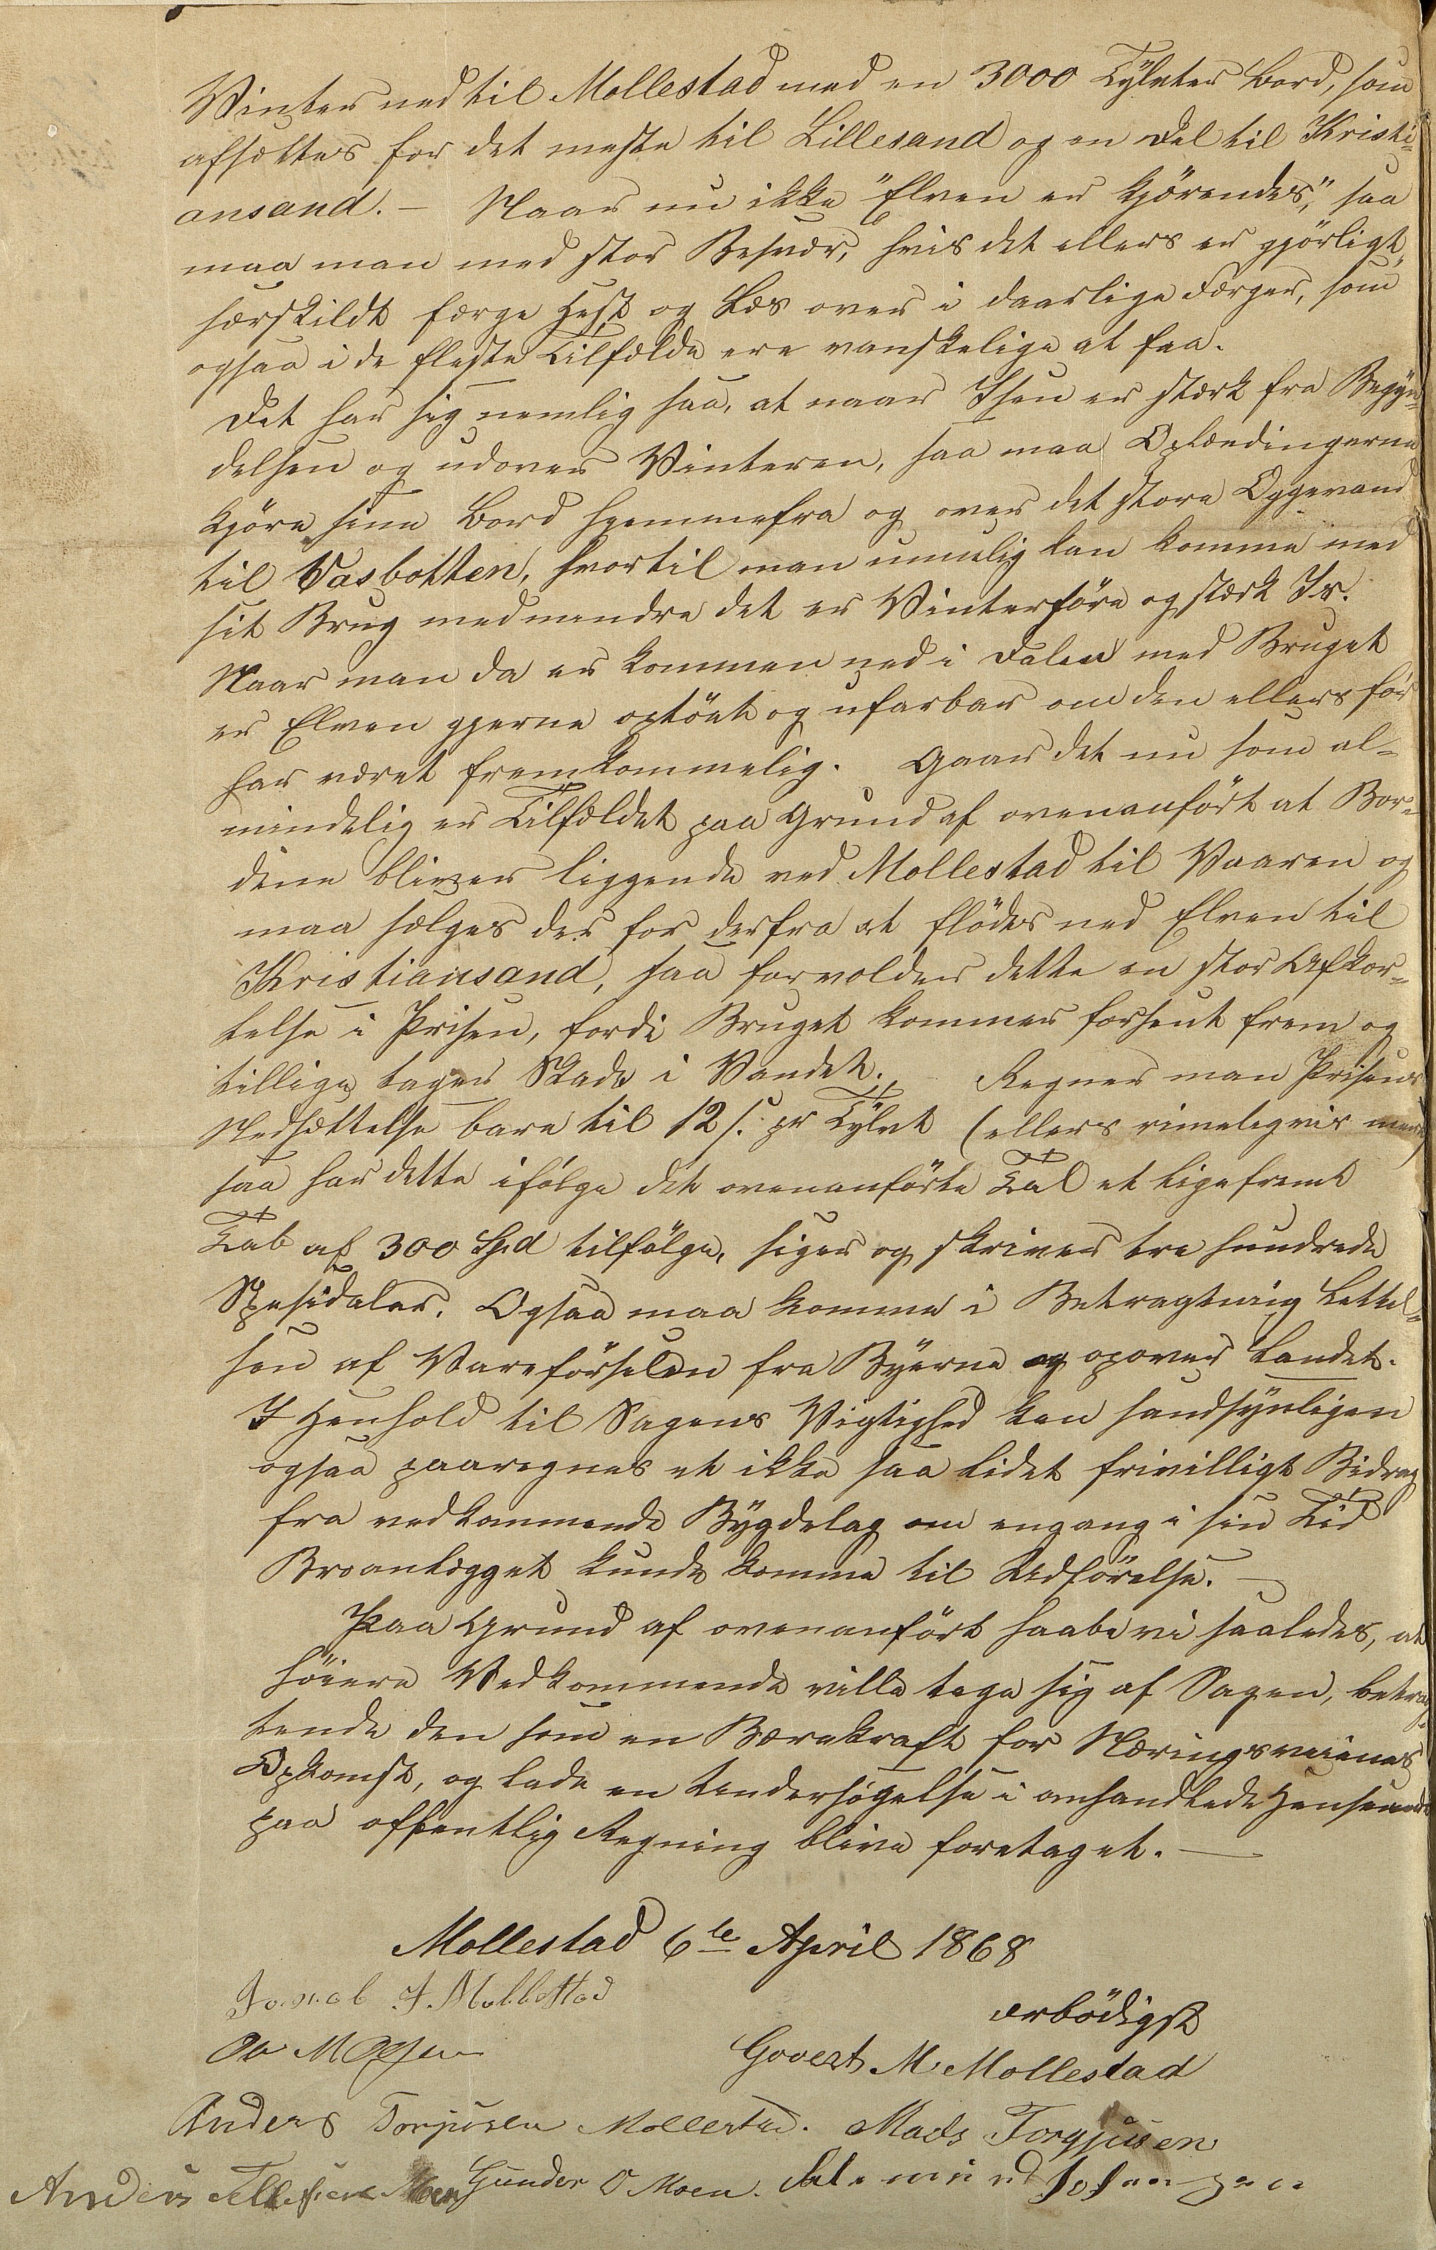 Vinter ned til Mollestad med en 3000 Tylvter Bord, som
afsættes for det meste til Lillesand og en Del til Kristi-
ansand. – Naar nu ikke "Elven er kjörendes", saa
maa man med stor Besvær, hvis det ellers er gjörligt,
særskildt færge Hest og Læs over i daarlige Færger, som
ogsaa i de fleste Tilfælde ere vanskelige at faa.
Det har sig nemlig saa, at naar Isen er stærk fra Begyn-
delsen og udover Vinteren, saa maa Oplændingerne
kjöre sine Bord hjemmefra og over det store Oggevand
til Vasbotten, hvortil man umulig kan komme med
sit Brug medmindre det er Vinterföre og stærk Is.
Naar man da er kommen ned i Dalen med Bruget
er Elven gjerne optöet og ufarbar om den ellers för
har været fremkommelig. Gaar det nu som al-
mindelig er Tilfældet paa Grund af ovenanfört at Bor-
dene bliver liggende ved Mollestad til Vaaren og
maa sælges der for derfra at flödes ned Elven til
Kristiansand, saa forvolder dette en stor Afkor-
telse i Prisen, fordi Bruget kommer forsent frem og
tillige tager Skade i Vandet. Regner man Prisens
Nedsættelse bare til 12 s. pr Tylvt (ellers rimeligvis mere)
saa har dette ifölge det ovenanförte Tal et ligefremt
Tab af 300 Spd tilfölge, siger og skriver tre hundrede
Spesidaler. Ogsaa maa komme i Betragtning Lettel-
sen af Vareförselen fra Byerne og opover Landet.
I Henhold til Sagens Vigtighed kan sandsynligen
ogsaa paaregnes et ikke saa lidet frivilligt Bidrag
fra vedkommende Bygdelag om engang i sin Tid
Broanlægget kunde komme til Udförelse. –
Paa Grund af ovenanfört haabe vi saaledes, at
höiere Vedkommende ville tage sig af Sagen, betrag-
tende den som en Bærekraft for Næringsveienes
Opkomst, og lade en Undersögelse i omhandlede Henseende
paa offentlig Regning blive foretaget. –
Mollestad 6te April 1868
ærbödigst
J. Mollestad
Govert M. Mollestad
Anders Torjusen Mollestad. Mads Torgjusen
Anders Tellefsen Moen Gunder O Moen.